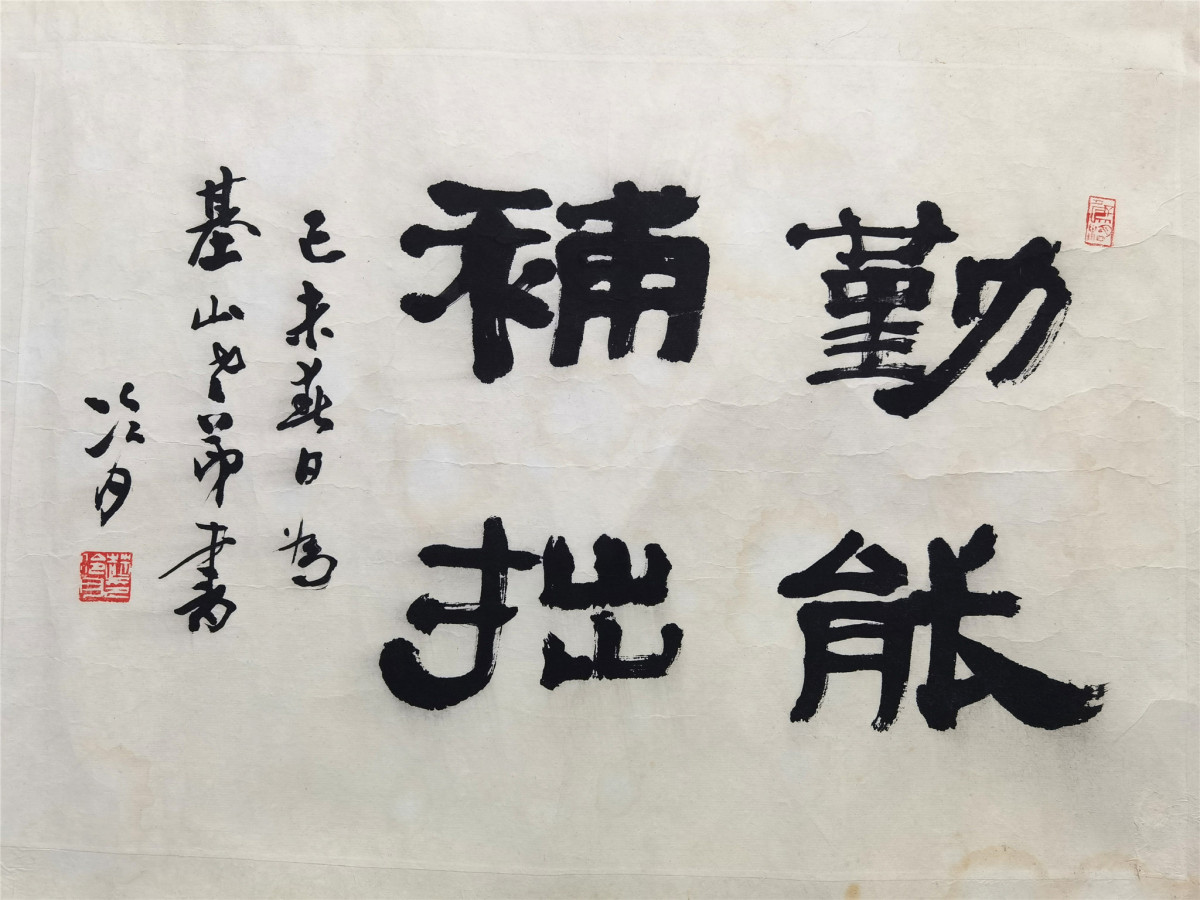 勤能
補拙
己未春日為
基山老弟書
冷月